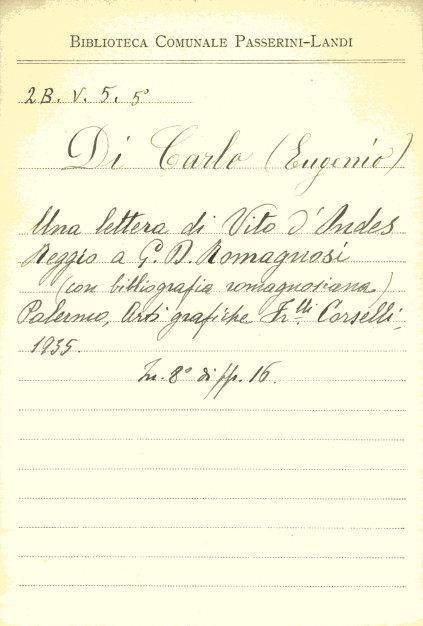 BIBLIOTECA COMUNALE PASSERINI-LANDI
2B. V. 5. 5°
Di Carlo (Eugenio)
Una lettera di Vito d'Ondes
Reggio a G. D. Romagnosi
(con bibliografia romagnosiana)
Palermo, Arti grafiche F.lli Corselli,
1935.
In. 8° di pp. 16.